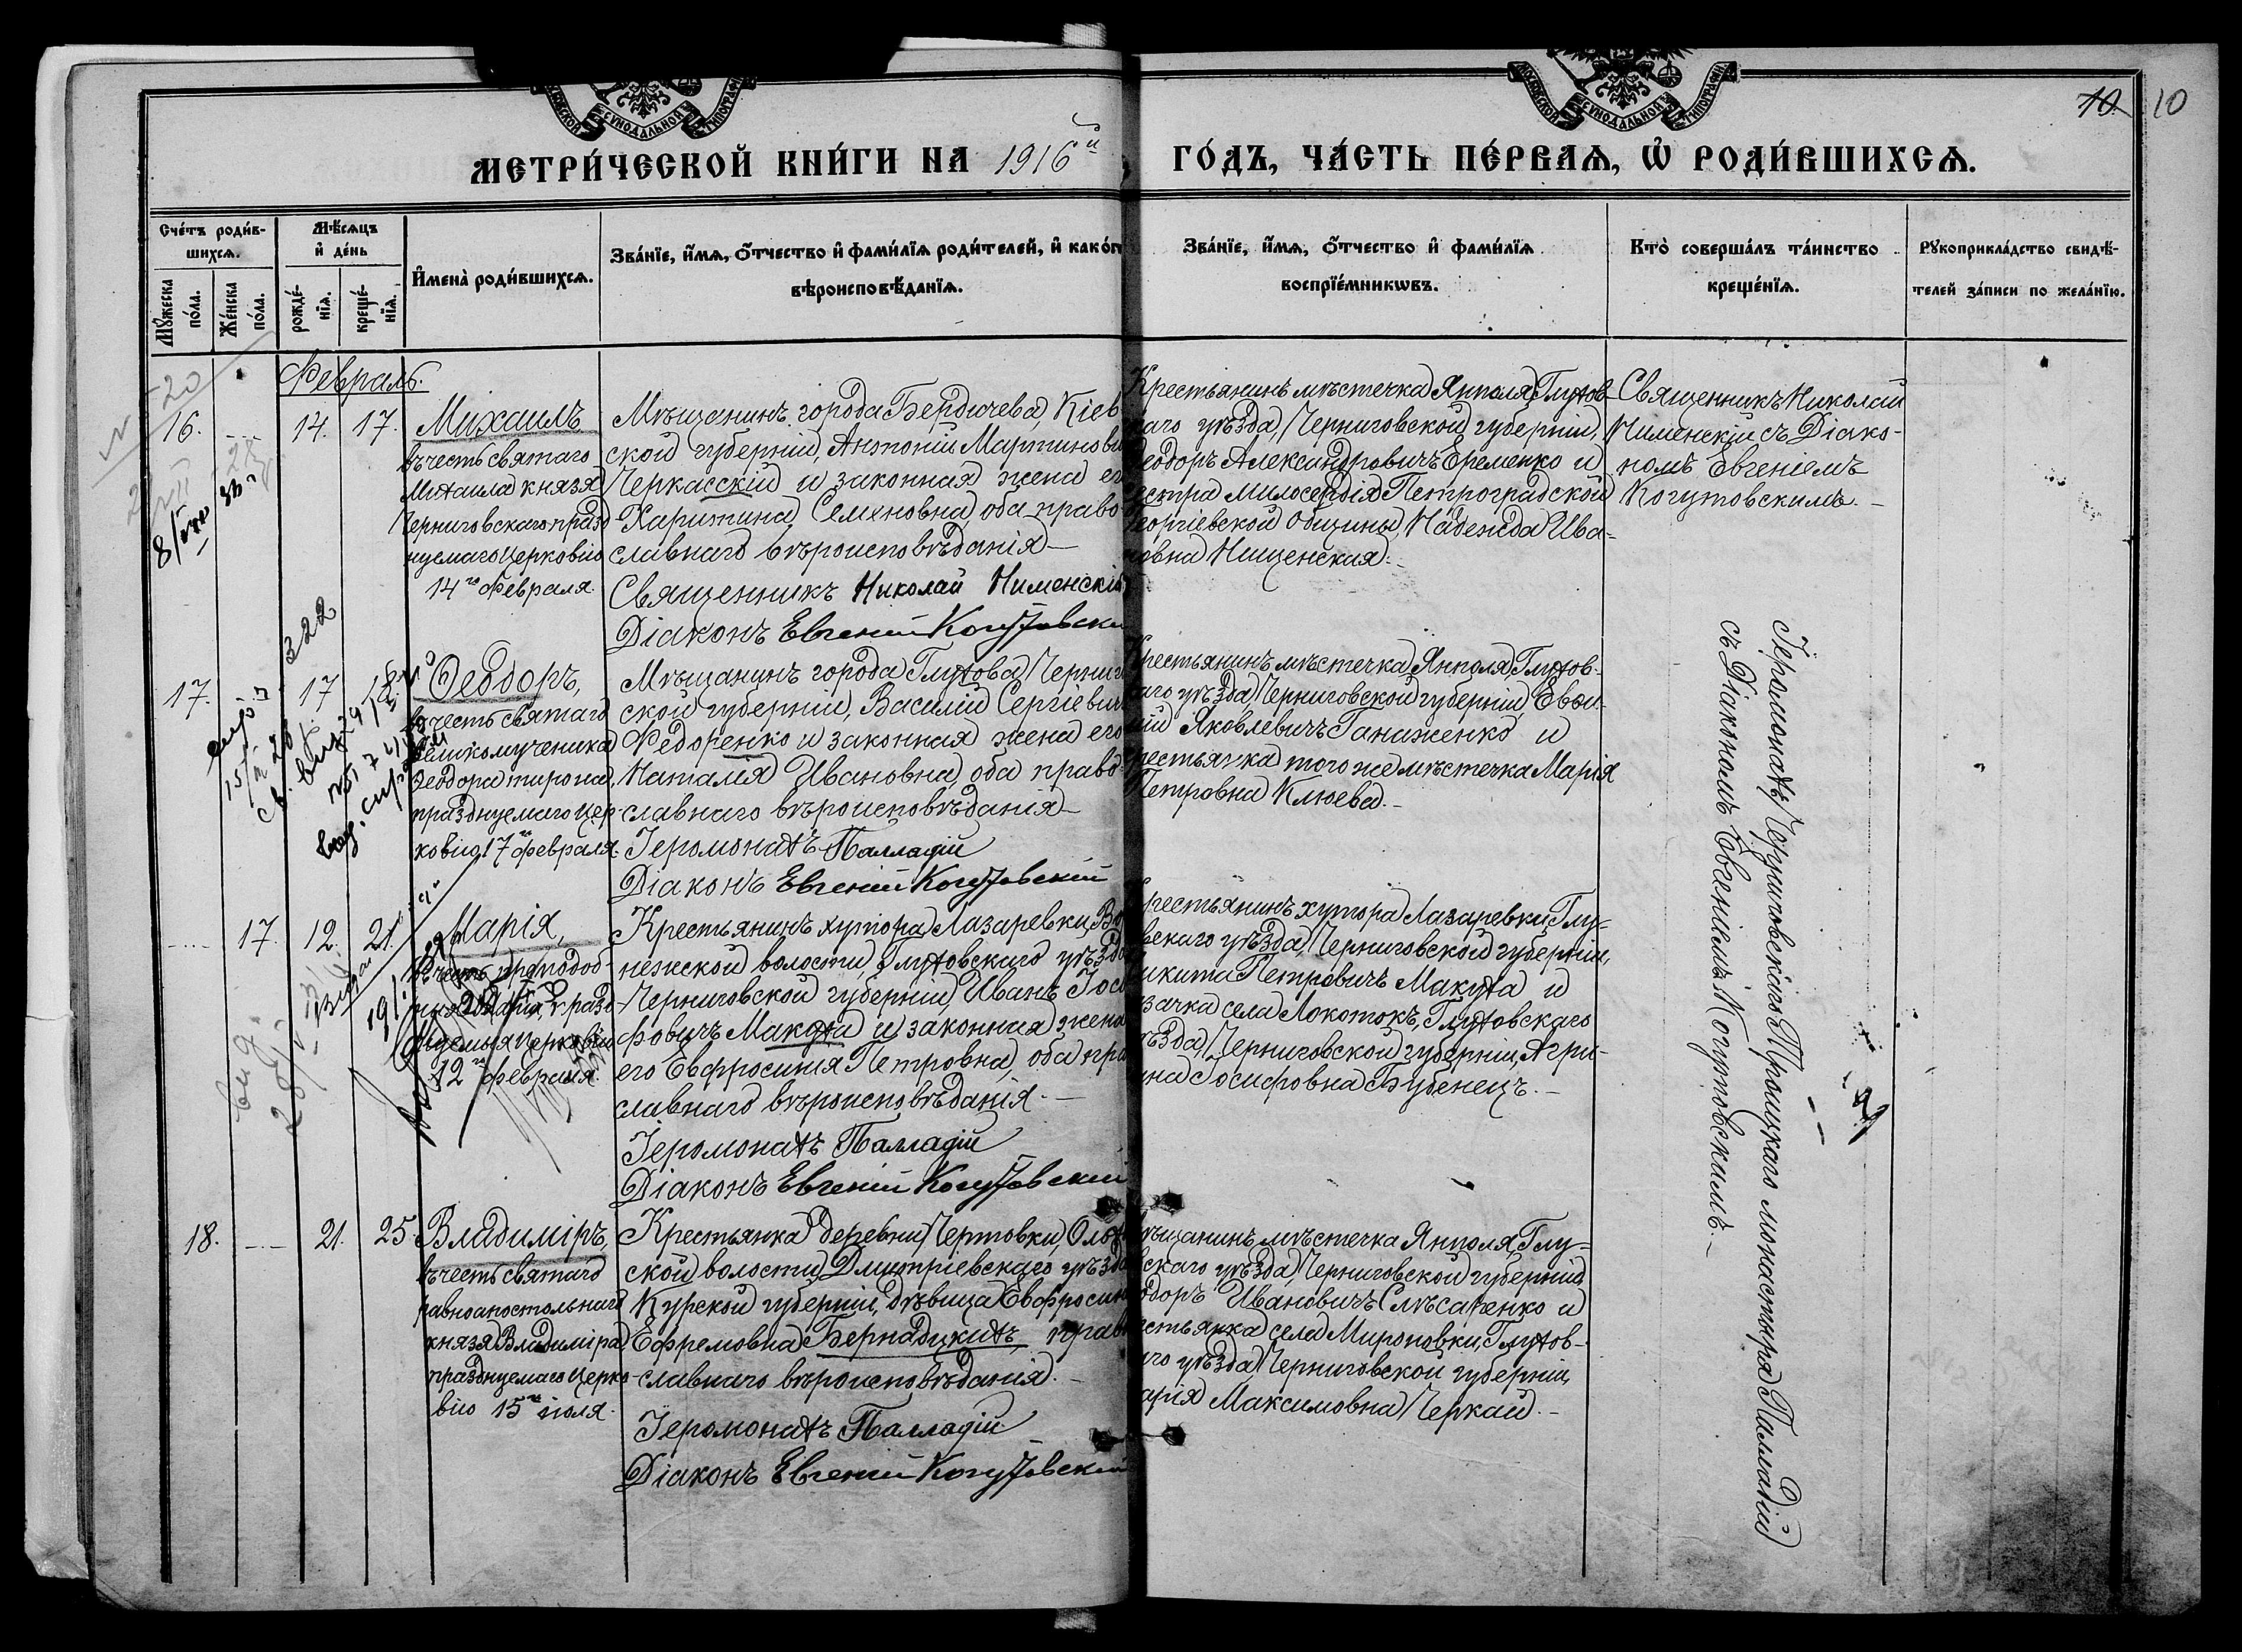 МОСКОВСКОЙ СѴНОДАЛЬНОЙ ТИПОГРАФІИ
МОСКОВСКОЙ СѴНОДАЛЬНОЙ ТИПОГРАФІИ
10 10
МЕТРИ́ЧЕСКОЙ КНИ́ГИ НА 1916й ГО́ДЪ, ЧА́СТЬ ПЕ́РВАѦ, Ѽ РОДИ́ВШИХСѦ.
Сче́тъ роди́в-
шихсѧ.
Мꙋ́жеска
по́ла.
Же́нска
по́ла.
Мѣ́сѧцъ
и҆ де́нь
рожде́-
нїѧ.
креще́-
нїѧ.
И҆мена̀ роди́вшихсѧ.
Зва́нїе, и҆́мѧ, ѻ҆́тчество и҆ фами́лїѧ роди́телей, и҆ како́гѡ
вѣроисповѣ́данїѧ.
Зва́нїе, и҆́мѧ, ѻ҆́тчество и҆ фами́лїѧ
воспрїе́мникѡвъ.
Кто̀ соверша́лъ та́инство
креще́нїѧ.
Рꙋкоприкла́дство свидѣ́-
телей за́писи по жела́нїю.
Февраль.
16. 14. 17.
Михаилъ
въ честь святаго
Михаила князя
Черниговскаго празд
нуемаго Церковію
14го Февраля.
Мѣщанинъ города Бердичева, Кіев
ской губерніи, Антоній Мартинови
Черкасскій и законная жена ег
Харитина Семеновна, оба право
славнаго вѣроисповѣданія —
Священникъ Николай Пименскій
Діаконъ Евгеній Когутовски
Крестьянинъ мѣстечка Янполя, Глухов-
каго уѣзда, Черниговской губерніи,
Ѳеодоръ Александровичъ Еременко и
сестра Милосердія Петроградской
Георгіевской общины, Надежда Ива-
новна Нищенская. –
Священникъ Николай
Пименскій съ Діако-
номъ Евгеніемъ
Когутовскимъ. –
322
17. 17 18.
Ѳеодоръ,
въ честь святаго
великомученика
Ѳеодора тирона,
празднуемаго Цер-
ковію 17го февраля.
Мѣщанинъ города Глухова Черниг
ской губерніи, Василій Сергіевич
Федоренко и законная жена его
Наталія Ивановна, оба право-
славнаго вѣроисповѣданія –
Іеромонахъ Палладій
Діаконъ Евгеній Когутовскій
Крестьянинъ мѣстечка Янполя, Глухов-
каго уѣзда, Черниговской губерніи Евѳи-
мій Яковлевичъ Ганаженко и
крестьянка того же мѣстечка Марія
Петровна Клюева. –
17. 12. 21.
Марія,
въ честь преподоб-
ныя Маріи, празд-
нуемыя Церковію
12го февраля.
Крестьянинъ хутора Лазаревки, Во
нежской волости, Глуховскаго уѣзда
Черниговской губерніи, Иванъ Іоси
фовичъ Макуха и законная жена
его Евфросинія Петровна, оба пра
славнаго вѣроисповѣданія. –
Іеромонахъ Палладій
Діаконъ Евгеній Когутовскій
Крестьянинъ хутора Лазаревки, Глу-
вскаго уѣзда, Черниговской губерніи,
Никита Петровичъ Макуха и
зачка села Локотокъ, Глуховскаго
уѣзда, Черниговской губерніи, Агри-
ина Іосифовна Бубенецъ. –
Іеромонахъ Черниговскаго Троицкаго монастыря Палладій
съ Діакономъ Евгеніемъ Когутовскимъ. –
18. 21. 25
Владиміръ,
въ честь святаго
равноапостольнаго
князя Владиміра,
празднуемаго Церко-
вію 15го іюля.
Крестьянка деревни Чертовки, Ольх
ской волости Дмитріевскаго уѣзда
Курской губерніи, дѣвица Евфросин
Ефремовна Бернадскихъ, прав
славнаго вѣроисповѣданія. –
Іеромонахъ Палладій
Діаконъ Евгеній Когутовскій
Мѣщанинъ мѣстечка Янполя, Глу-
вскаго уѣзда, Черниговской губерніи
одоръ Ивановичъ Слѣсаренко и
естьянка села Мироновки, Глухов-
аго уѣзда, Черниговской губерніи,
арія Максимовна Черкай. –